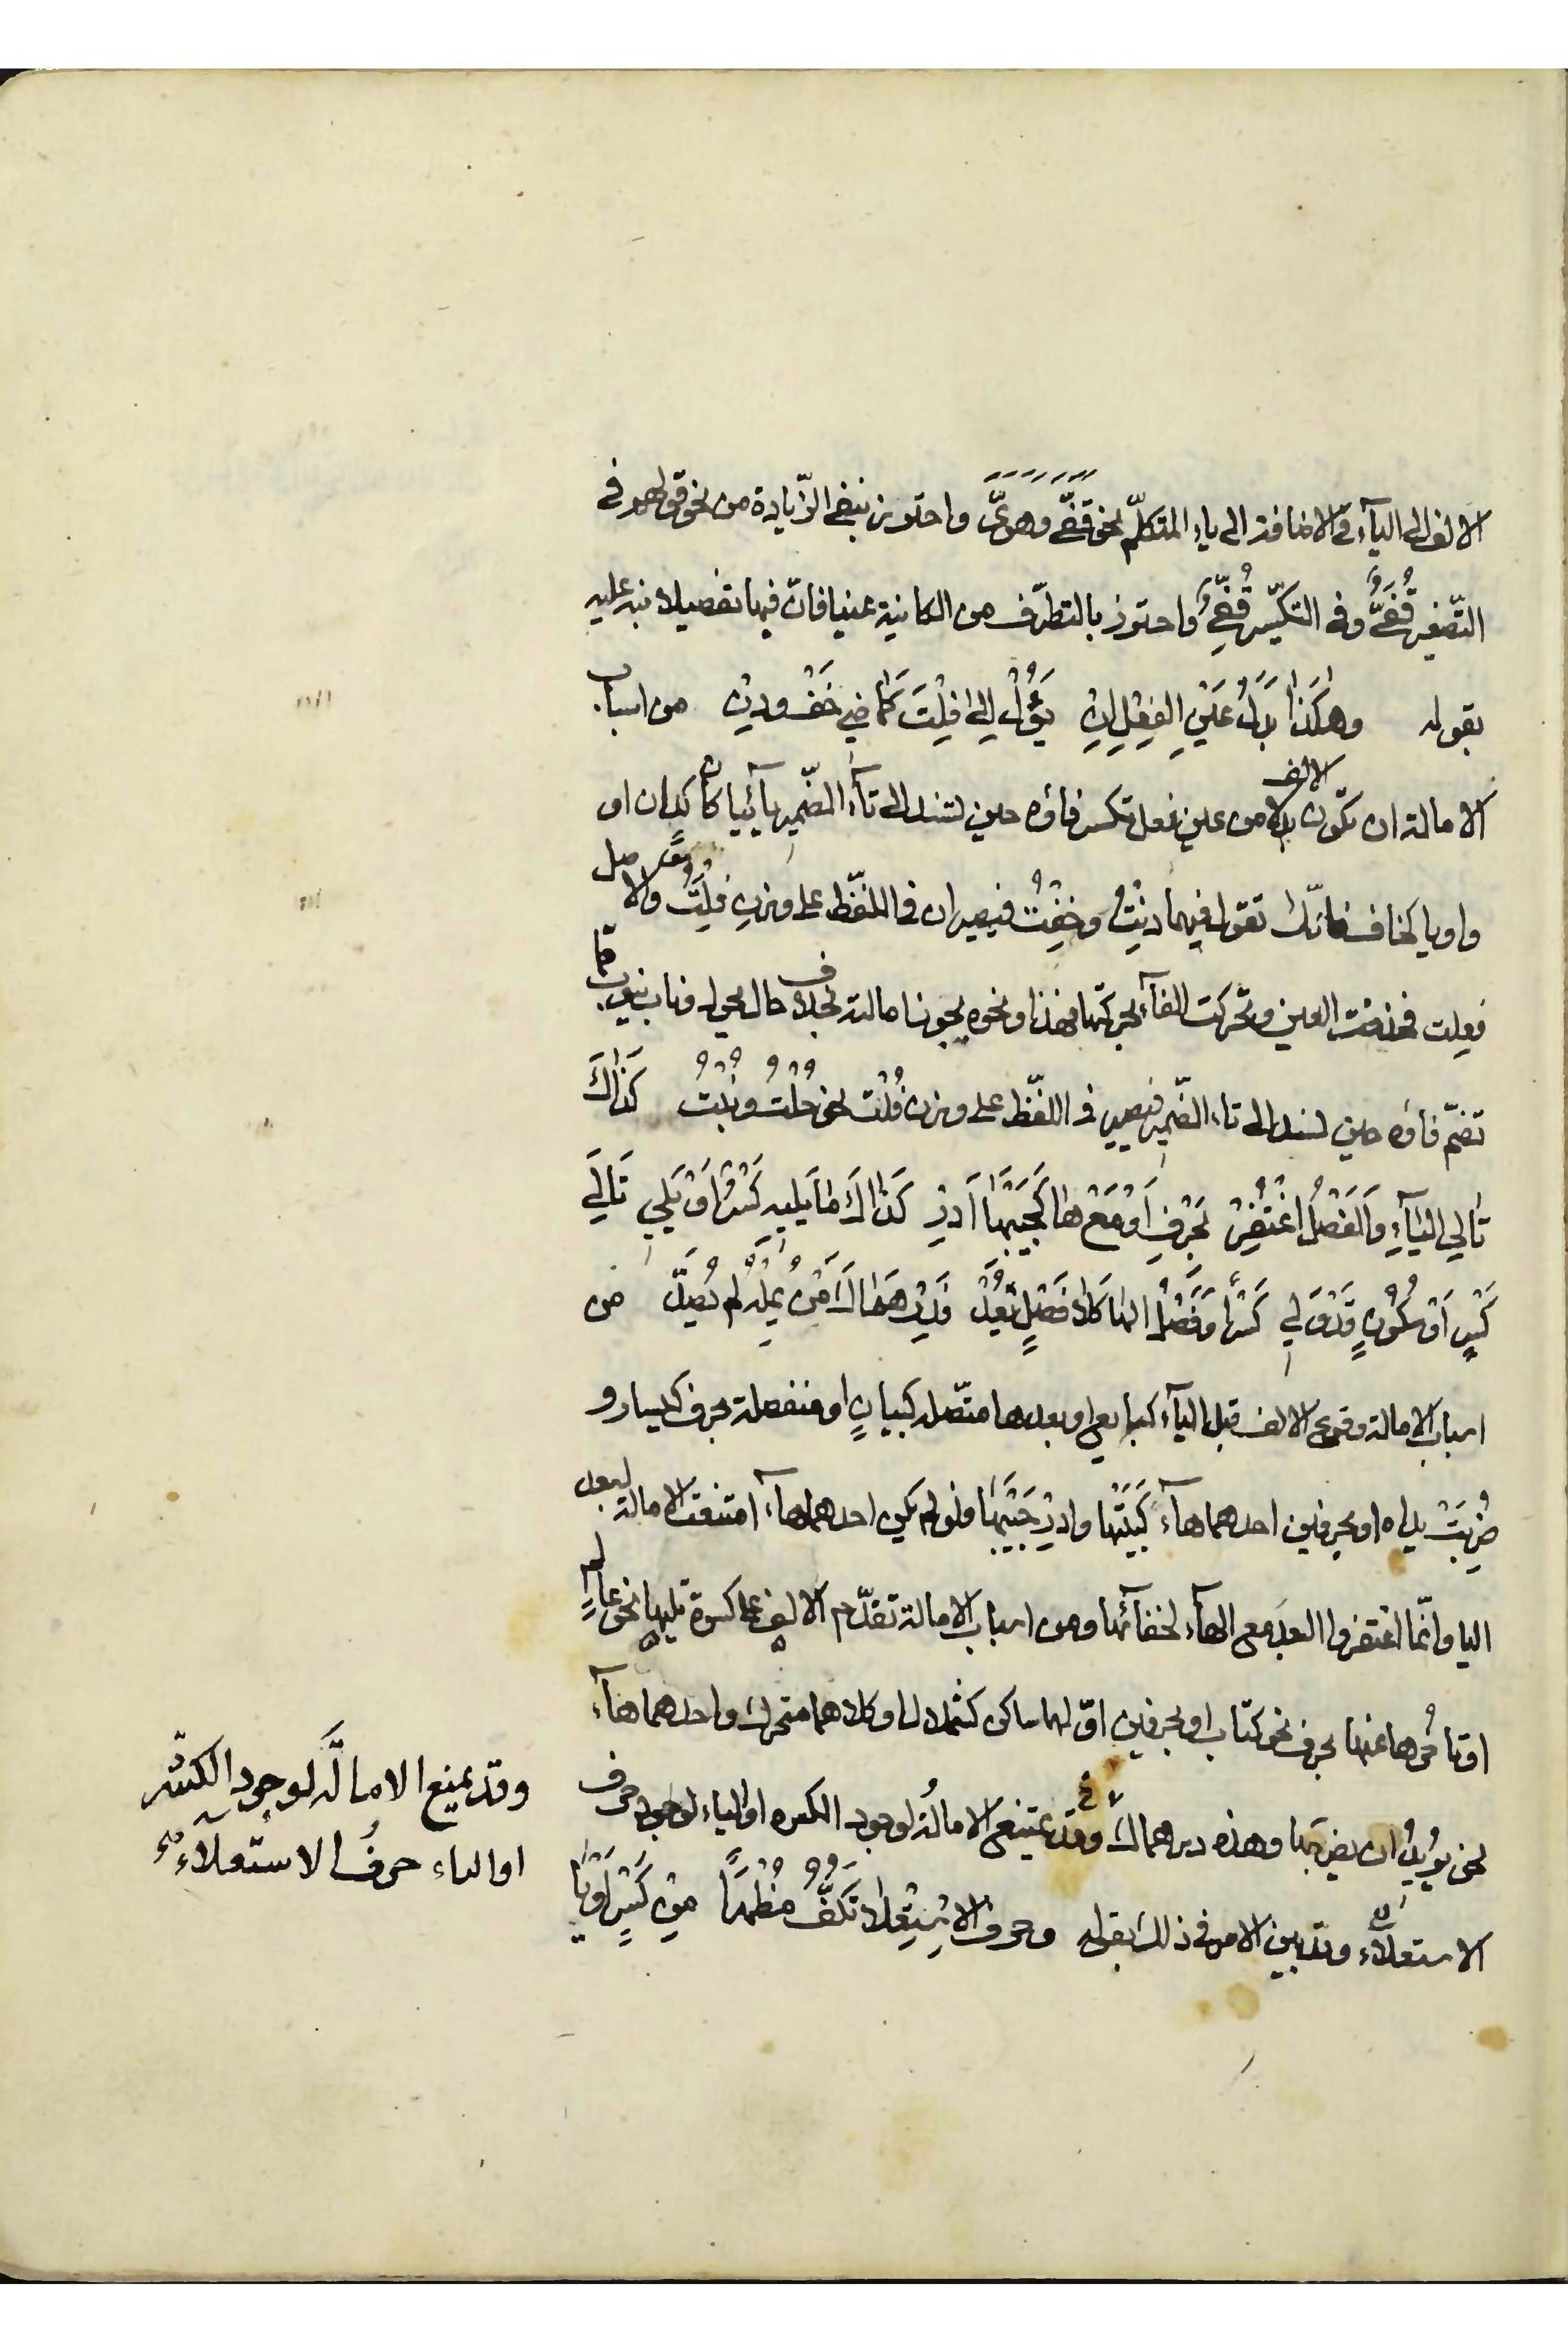 الالف الى اليآء فى الاضافة الى ياء المتكلّم نحو قفىّ وهوىّ واحترز بنفى الزّيادة من نحو قولهم فى
التّصغير قُفَىٌّ وفى التكسير قُفِىٌّ واحترز بالتطرّف من الكاينة عينا فانّ فيها تفصيلا نبه عليه
بقوله وهٰكَذٰا بَدَلُ عَيْنِ الفِعْلِ اِنْ يَؤُلْ اِلىٰ فِلْتَ كَمٰاضِى خَفْ وَدِنْ من اسباب
الامالة ان تكون الالف بدلا من عين فعل تكسر فاؤه حين تسند الى تآء الضّمير يآئيا كان كدان او
واويا كخاف فانّك تقول فيهما دِنْتُ وخِفْتُ فيصيران فى اللفظ على وزن فِلْتُ والاصل
فعلت فحذفت العين وتحركت الفآء بحركتها فهذا ونحوه يجوز امالته بخلاف حال يحول وتاب يتوب مما
تضمّ فاؤه حين تسند الى تاء الضّمير فيصير فى اللفظ على وزن فُلْت نحو حُلْتُ وتُبْتُ كَذٰاكَ
تٰالِى اليٰآءِ وَالفَصْلُ اغْتُفِرْ بحَرْفٍ اَوْ مَعْ هٰا كَجَيْبَهٰا اَدِرْ كَذٰاكَ مٰا يَلِيهِ كَسْرٌ اَوْ يَلِى تٰالِى
كَسْرٍ اَوْ سُكُونٍ قَدْ وَلِى كَسْرًا وَفَصْلُ الهٰا كَلا فَصْلٍ يُعَدّْ فَدِرْهَمٰاكَ مَنْ يُمِلْهُ لَمْ يُصَدّْ من
اسباب الامالة وقوع الالف قبل اليآء كبايع او بعدها متّصلة كبيانٍ او منفصلة بحرف كيسار و
ضُرِبَتْ يداه او بحرفين احدهما هآء كَبَيْتَهٰا وادِرْ جَيْبَهٰا فلو لم يكن احدهما هآء امتنعت الامالة لبعد
اليا وانّما اغتفروا البعد مع الهآء لخفآئها ومن اسباب الامالة تقدّم الالف على كسرة تليها نحو عالم
او تاخّرها عنها بحرف نحو كتاب او بحرفين اوّلهما ساكن كشملال او كلاهما متحرك واحدهما هآء
نحو يُرِيدُ ان يضربها وهذه درهماك وقد يمتنع الامالة لوجود الكسره او الياء لوجود حرف
الاستعلاء وقد بين الامر فى ذلك بقوله وحرف الاسْتِعْلا يَكُفُّ مُظْهَرًا مِنْ كَسْرٍ اَوْ يٰا
وقد يمنع الامالة لوجود الكسر
او الياء حرفُ الاستعلاء